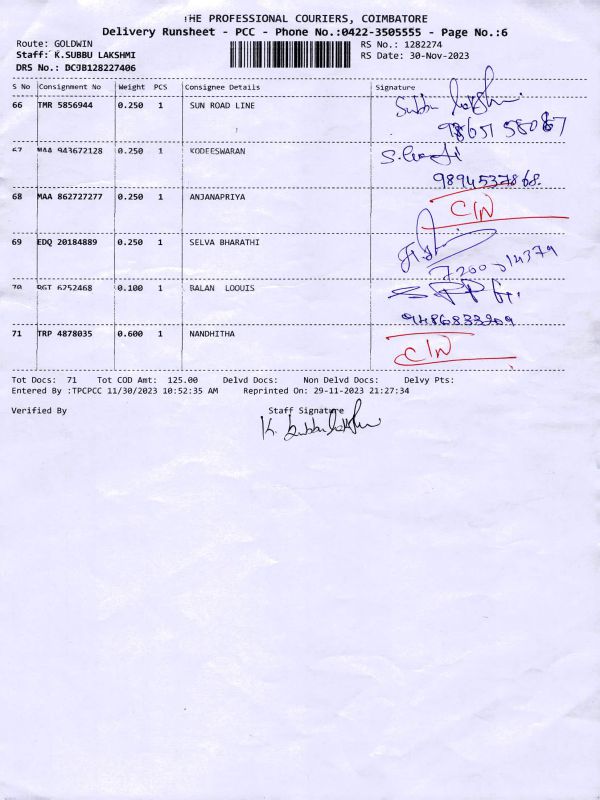 THE PROFESSIONAL COURIERS, COIMBATORE
Delivery Runsheet - PCC - Phone No.:0422-3505555 - Page No.:6
Route: GOLDWIN RS No.: 1282274
Staff: K.SUBBU LAKSHMI RS Date: 30-Nov-2023
DRS No.: DCJB128227406
S No Consignment No Weight PCS Consignee Details Signature
66 TMR 5856944 0.250 1 SUN ROAD LINE Subbu Lakshmi
67 MAA 943672128 0.250 1 KODEESWARAN
9894537868.
68 MAA 862727277 0.250 1 ANJANAPRIYA C/N
69 EDQ 20184889 0.250 1 SELVA BHARATHI
70 RGT 6252468 0.100 1 BALAN LOOUIS
9486833209
71 TRP 4878035 0.600 1 NANDHITHA
C/N
Tot Docs: 71 Tot COD Amt: 125.00 Delvd Docs: Non Delvd Docs: Delvy Pts:
Entered By :TPCPCC 11/30/2023 10:52:35 AM Reprinted On: 29-11-2023 21:27:34
Verified By Staff Signature
K. Subbu Lakshmi